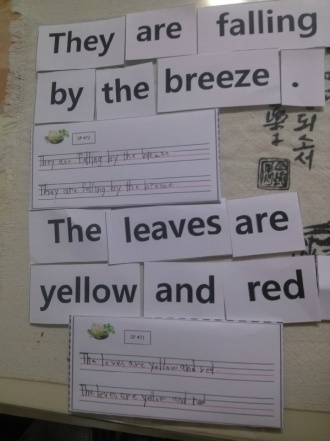 They are falling
by the breeze .
They are falling by the breeze
They are falling by the breeze
The leaves are
yellow and red
The leves are yellow and red
The leves are yellow and red
되소서